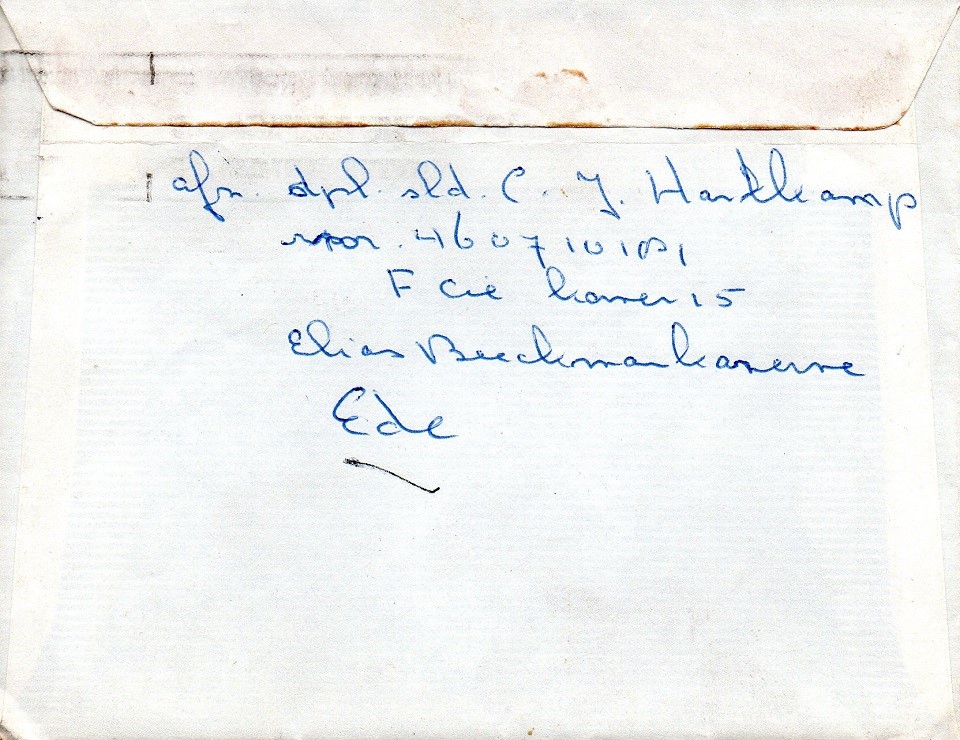 afz. dpl. sld. C. J. Hartkamp
F Cie kamer 15
Elias Beeckmankazerne
Ede